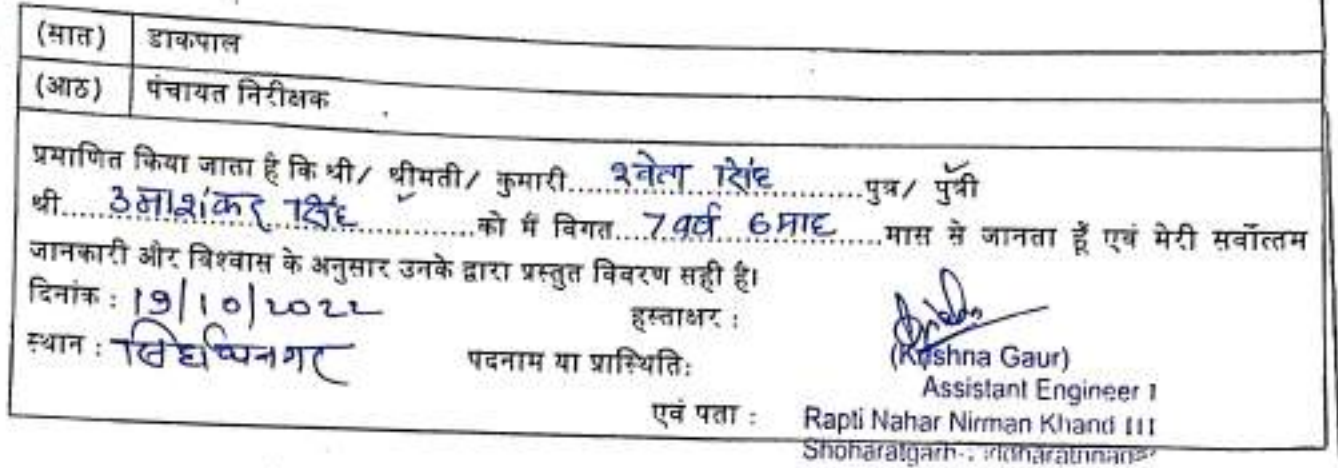 (सात) डाकपाल
(आठ) पंचायत निरीक्षक
प्रमाणित किया जाता है कि श्री/ श्रीमती/ कुमारी.....श्वेता सिंह.....पुत्र/ पुत्री
श्री.....उमाशंकर सिंह.....को मैं विगत...7 वर्ष 6 माह.....मास से जानता हूँ एवं मेरी सर्वोत्तम
जानकारी और विश्वास के अनुसार उनके द्वारा प्रस्तुत विवरण सही है।
दिनांक : 19/10/2022 हस्ताक्षर :
स्थान : पदनाम या प्रास्थिति: (Krishna Gaur)
Assistant Engineer I
एवं पता : Rapti Nahar Nirman Khand III
Shoharatgarh